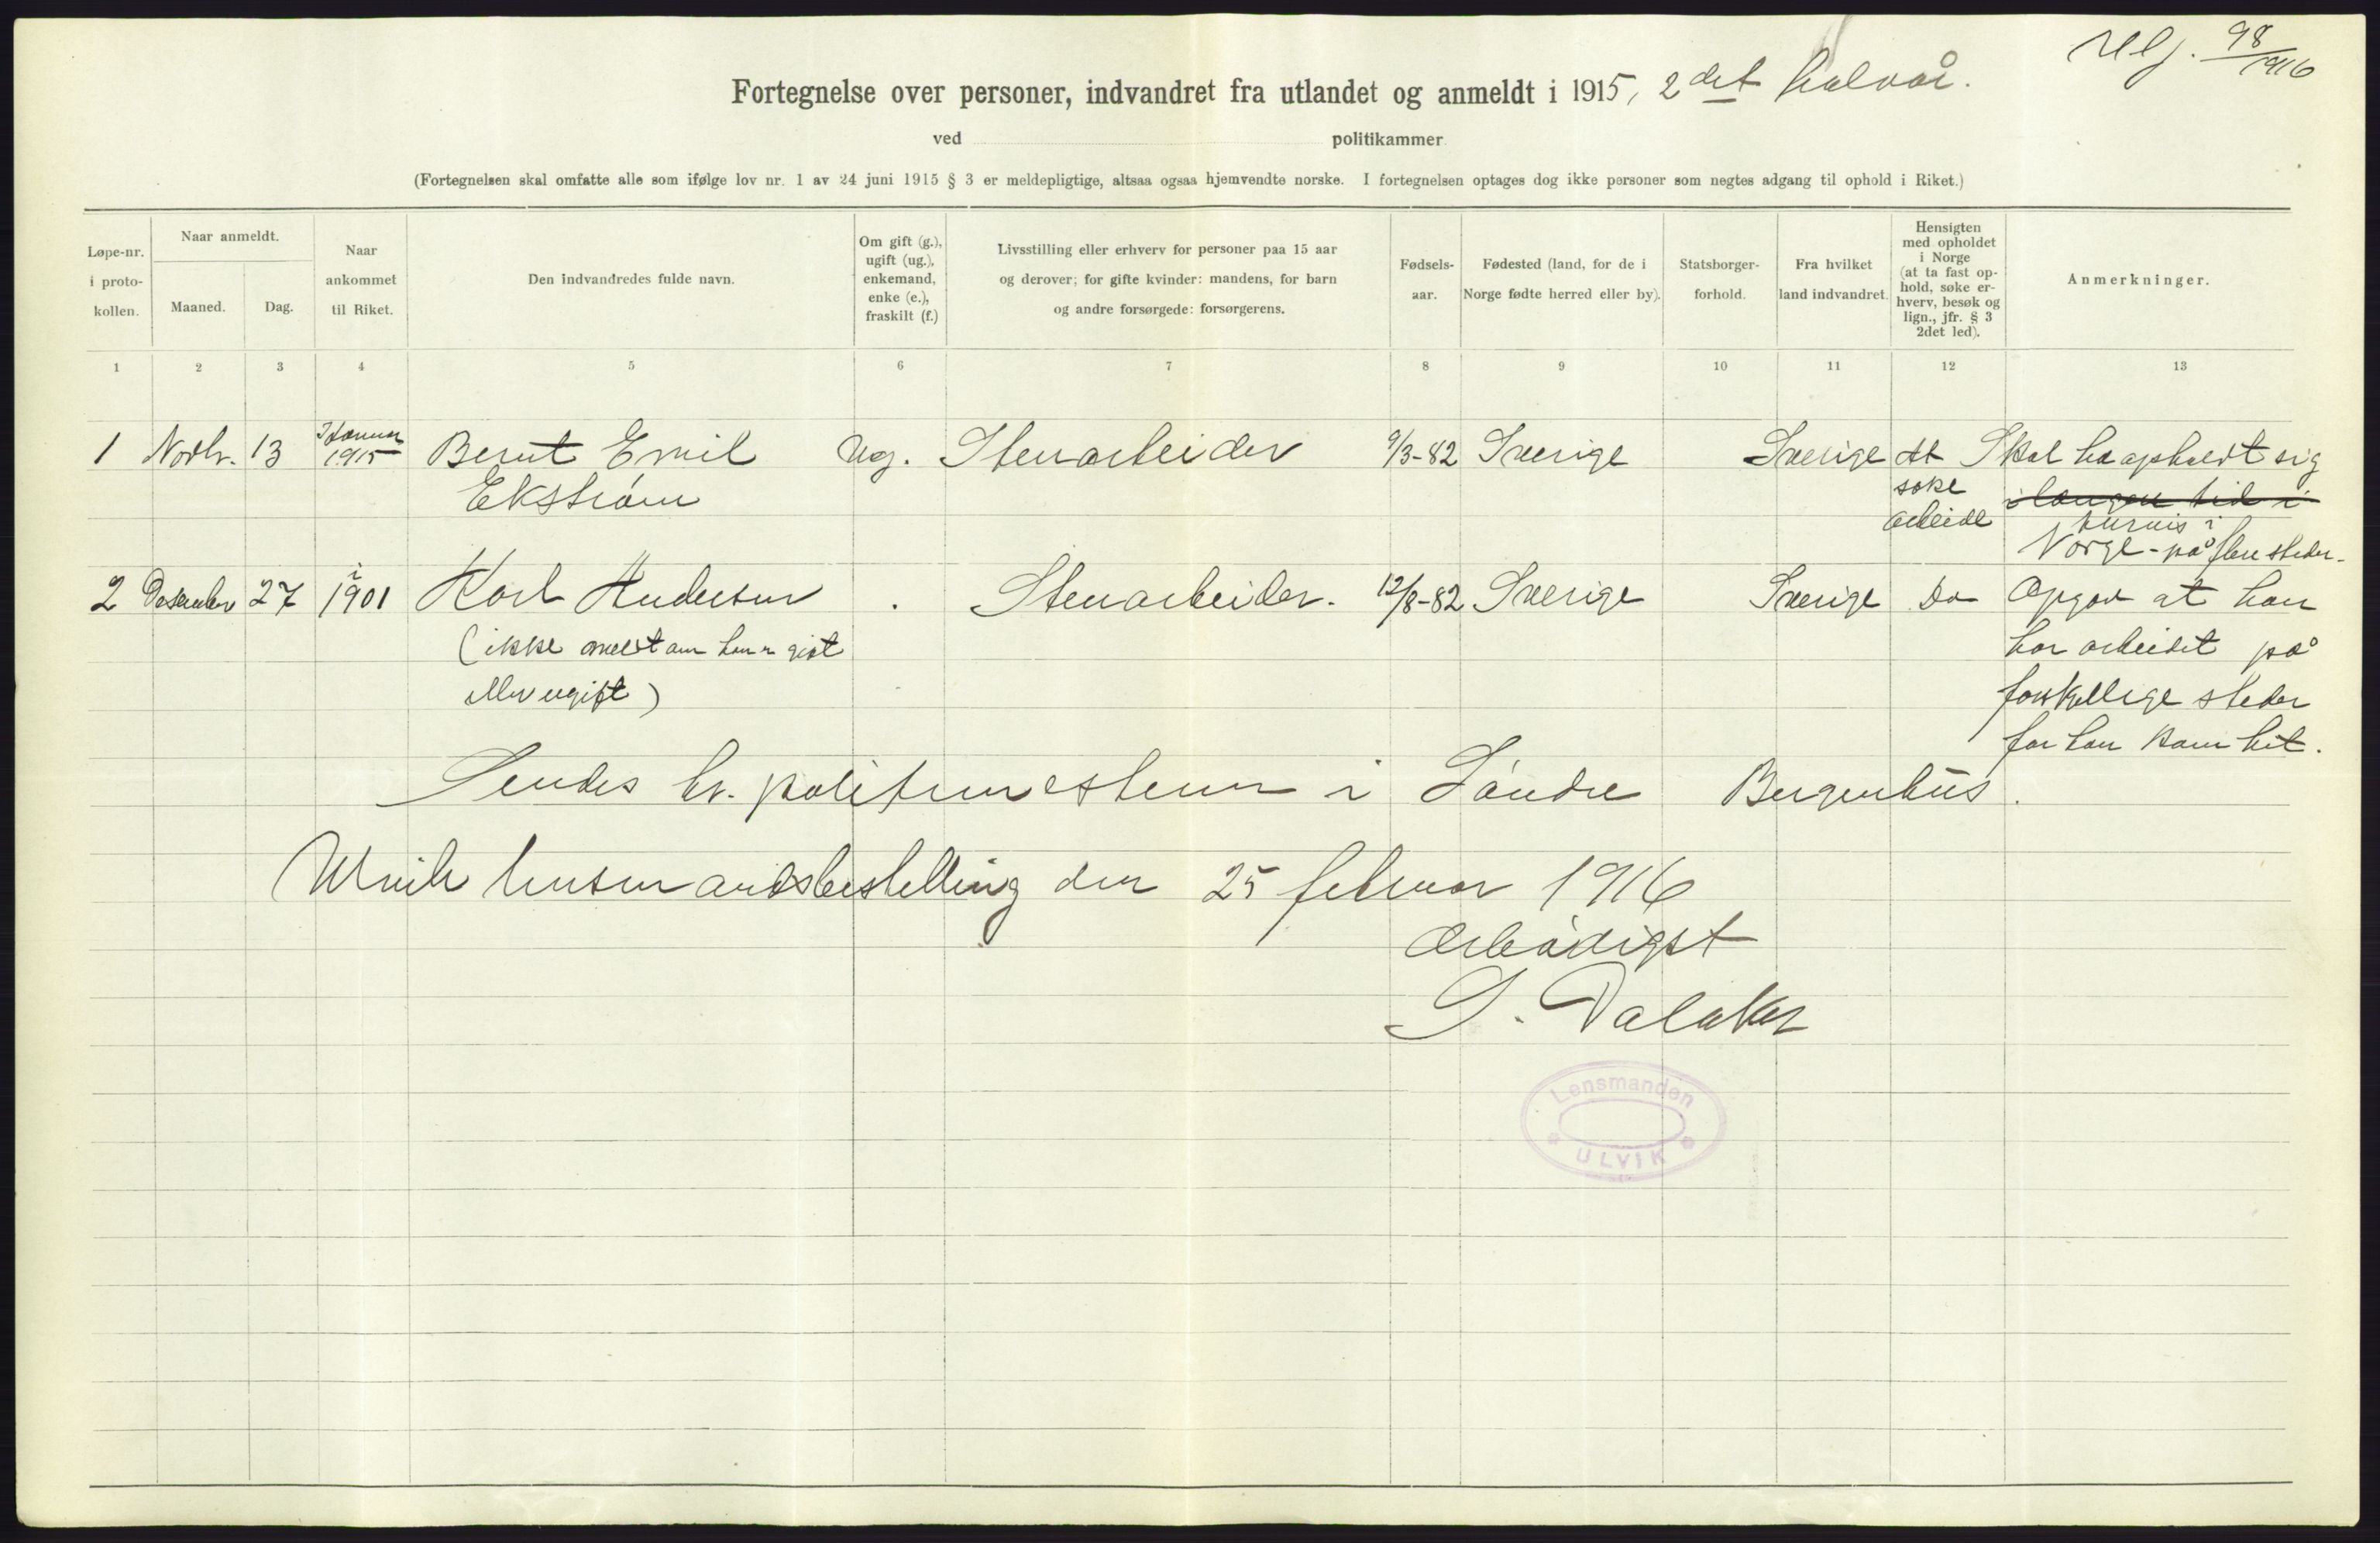 98
1916
Fortegnelse over personer, indvandret fra utlandet og anmeldt i 1915, 2det halvår.
ved politikammer
(Fortegnelsen skal omfatte alle som ifølge lov nr. 1 av 24 juni 1915 § 3 er meldepligtige, altsaa ogsaa hjemvendte norske. I fortegnelsen optages dog ikke personer som negtes adgang til ophold i Riket.)
Løpe-nr.
i proto-
kollen.
Naar anmeldt.
Maaned.
Dag.
Naar
ankommet
til Riket.
Den indvandredes fulde navn.
Om gift (g.),
ugift (ug.),
enkemand,
enke (e.),
fraskilt (f.)
Livsstilling eller erhverv for personer paa 15 aar
og derover; for gifte kvinder: mandens, for barn
og andre forsørgede: forsørgerens.
Fødsels-
aar.
Fødested (land, for de i
Norge fødte herred eller by).
Statsborger-
forhold.
Fra hvilket
land indvandret.
Hensigten
med opholdet
i Norge
(at ta fast op-
hold, søke er-
hverv, besøk og
lign., jfr. § 3
2det led).
Anmerkninger.
1 2 3 4 5 6 7 8 9 10 11 12 13
1 Novbr. 13 Januar 1915 Bernt Emil Ekström ug. Stenarbeider 9/3-82 Sverige Sverige At søke arbeide
Skal ha opholdt sig
i længere tid i
Norge - på flere steder -
2 Desember 27 i 1901 Karl Anderson . Stenarbeider. 12/8-82 Sverige Sverige Do
(ikke meldt om han er gift
eller ugift)
Opgav at han
har arbeidet på
forskjellige steder
før han kom hit.
Sendes hr. politimesteren i Söndre Bergenhus.
Ulvik lensmandsbestilling den 25 februar 1916
Ærbödigst
S. Dalaker
Lensmanden
ULVIK